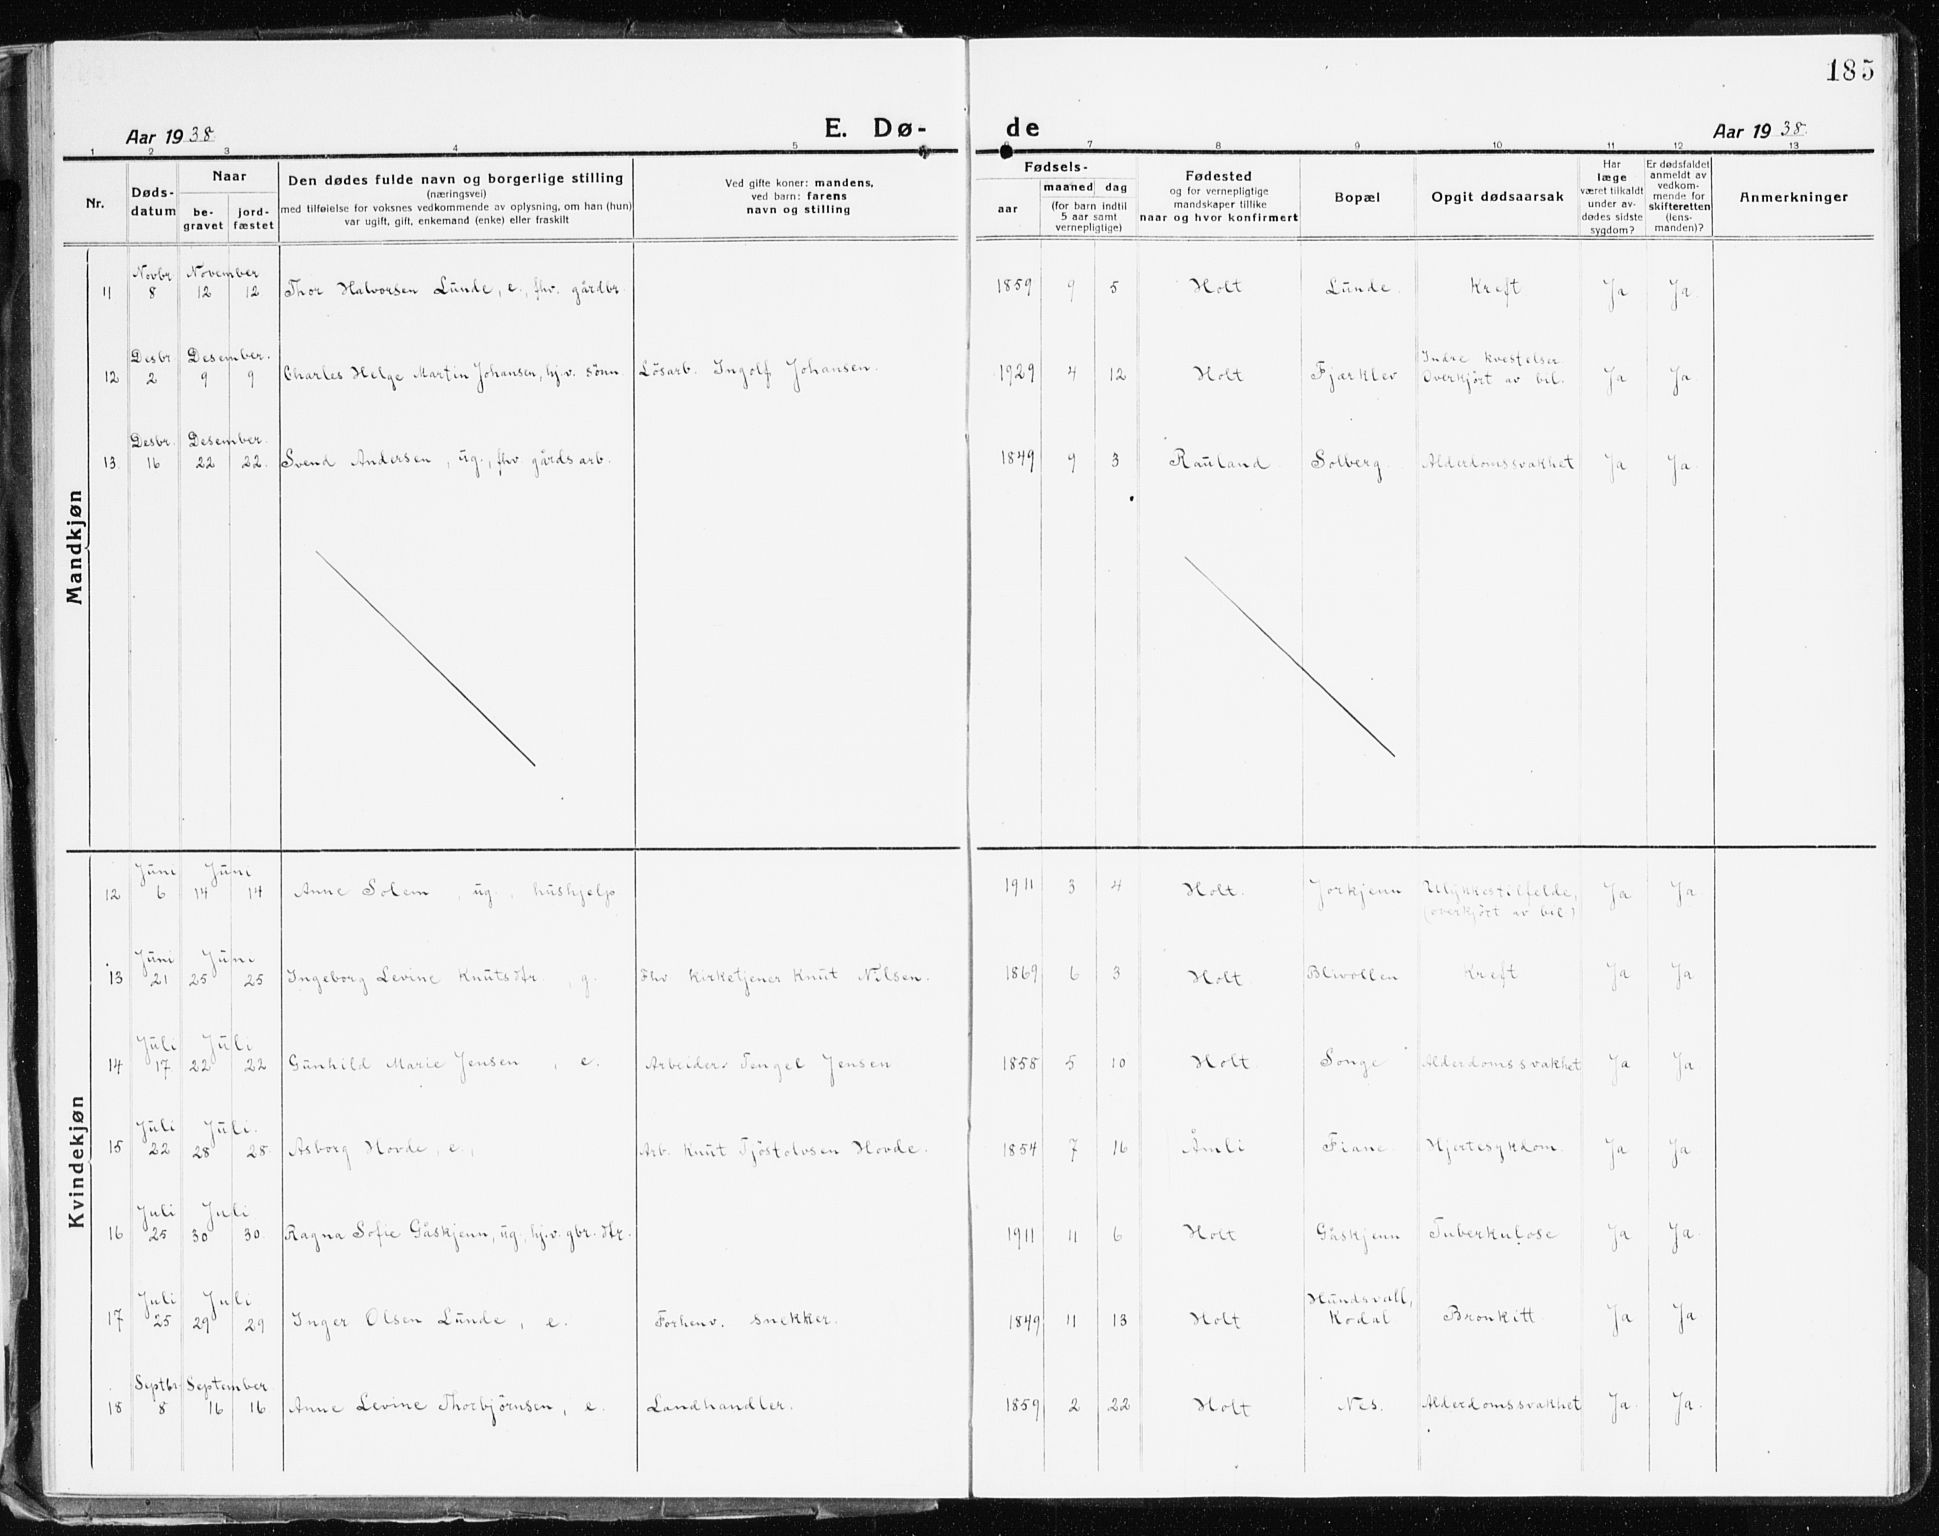 185
Aar 1938. E. Dø- de Aar 1938.
1 2 3 4 5 6 7 8 9 10 11 12 13
Nr. | Døds-datum | Naar be-gravet | jord-fæstet | Den dødes fulde navn og borgerlige stilling (næringsvei) med tilføielse for voksnes vedkommende av oplysning, om han (hun) var ugift, gift, enkemand (enke) eller fraskilt | Ved gifte koner: mandens, ved barn: farens navn og stilling | Fødsels- aar | maaned | dag (for barn indtil 5 aar samt vernepligtige) | Fødested og for vernepligtige mandskaper tillike naar og hvor konfirmert | Bopæl | Opgit dødsaarsak | Har læge været tilkaldt under av-dødes sidste sygdom? | Er dødsfaldet anmeldt av vedkom-mende for skifteretten (lens-manden)? | Anmerkninger
Mandkjøn
11 | Novbr. 8 | November 12 | 12 | Thor Halvorsen Lunde, e., fhv. gårdbr. | 1859 | 9 | 5 | Holt | Lunde. | Kreft | Ja | Ja.
12 | Desbr. 2 | Desember. 9 | 9 | Charles Helge Martin Johansen, hj.v. sönn | Lösarb. Ingolf Johansen. | 1929 | 4 | 12 | Holt | Fjærklev | Indre kvestelser. Overkjört av bil. | Ja | Ja.
13. | Desbr. 16 | Desember. 22 | 22. | Svend Andersen, ug., fhv. gårdsarb. | 1849 | 9 | 3 | Rauland. | Solberg. | Alderdomssvakhet | Ja | Ja.
Kvindekjøn
12 | Juni 6 | Juni 14 | 14 | Anne Solem, ug., hushjelp | 1911 | 3 | 4 | Holt. | Jorkjenn | Ulykkestilfelde, (overkjört av bil) | Ja | Ja.
13 | Juni 21 | Juni 25 | 25 | Ingeborg Levine Knutsdtr., g. | Fhv. Kirketjener Knut Nilsen. | 1869 | 6 | 3 | Holt. | Blivollen | Kreft | Ja | Ja
14 | Juli 17 | Juli 22 | 22 | Gunhild Marie Jensen, e. | Arbeider Tengel Jensen | 1858 | 5 | 10 | Holt. | Songe | Alderdomssvakhet | Ja | Ja.
15 | Juli 22 | Juli. 28 | 28. | Asborg Hovde, e., | Arb. Knut Tjöstolvsen Hovde. | 1854 | 7 | 16 | Åmli | Fiane. | Hjertesykdom. | Ja | Ja
16 | Juli 25 | Juli 30 | 30. | Ragna Sofie Gåskjenn, ug., hj.v. gbr. dtr. | 1911 | 11 | 6 | Holt | Gåskjenn | Tuberkulose | Ja | Ja.
17 | Juli 25 | Juli 29 | 29 | Inger Olsen Lunde, e. | Forhenv. snekker. | 1849 | 11 | 13 | Holt | Hundsvall, Kodal | Bronkitt. | Ja | Ja
18 | Septbr 8 | September. 16 | 16 | Anne Levine Thorbjörnsen, e. | Landhandler. | 1859 | 2 | 22 | Holt | Nes. | Alderdomssvakhet | Ja. | Ja.